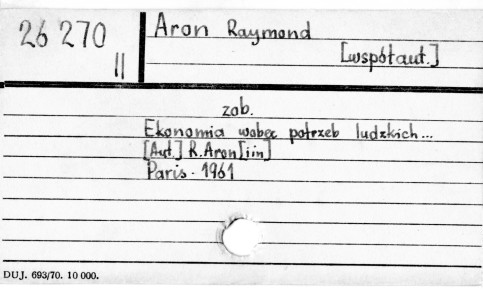 26 270
II
Aron Raymond
[współaut.]
zob.
Ekonomia wobec potrzeb ludzkich...
[Aut.] R. Aron [iin]
Paris. 1961
DUJ. 693/70. 10 000.